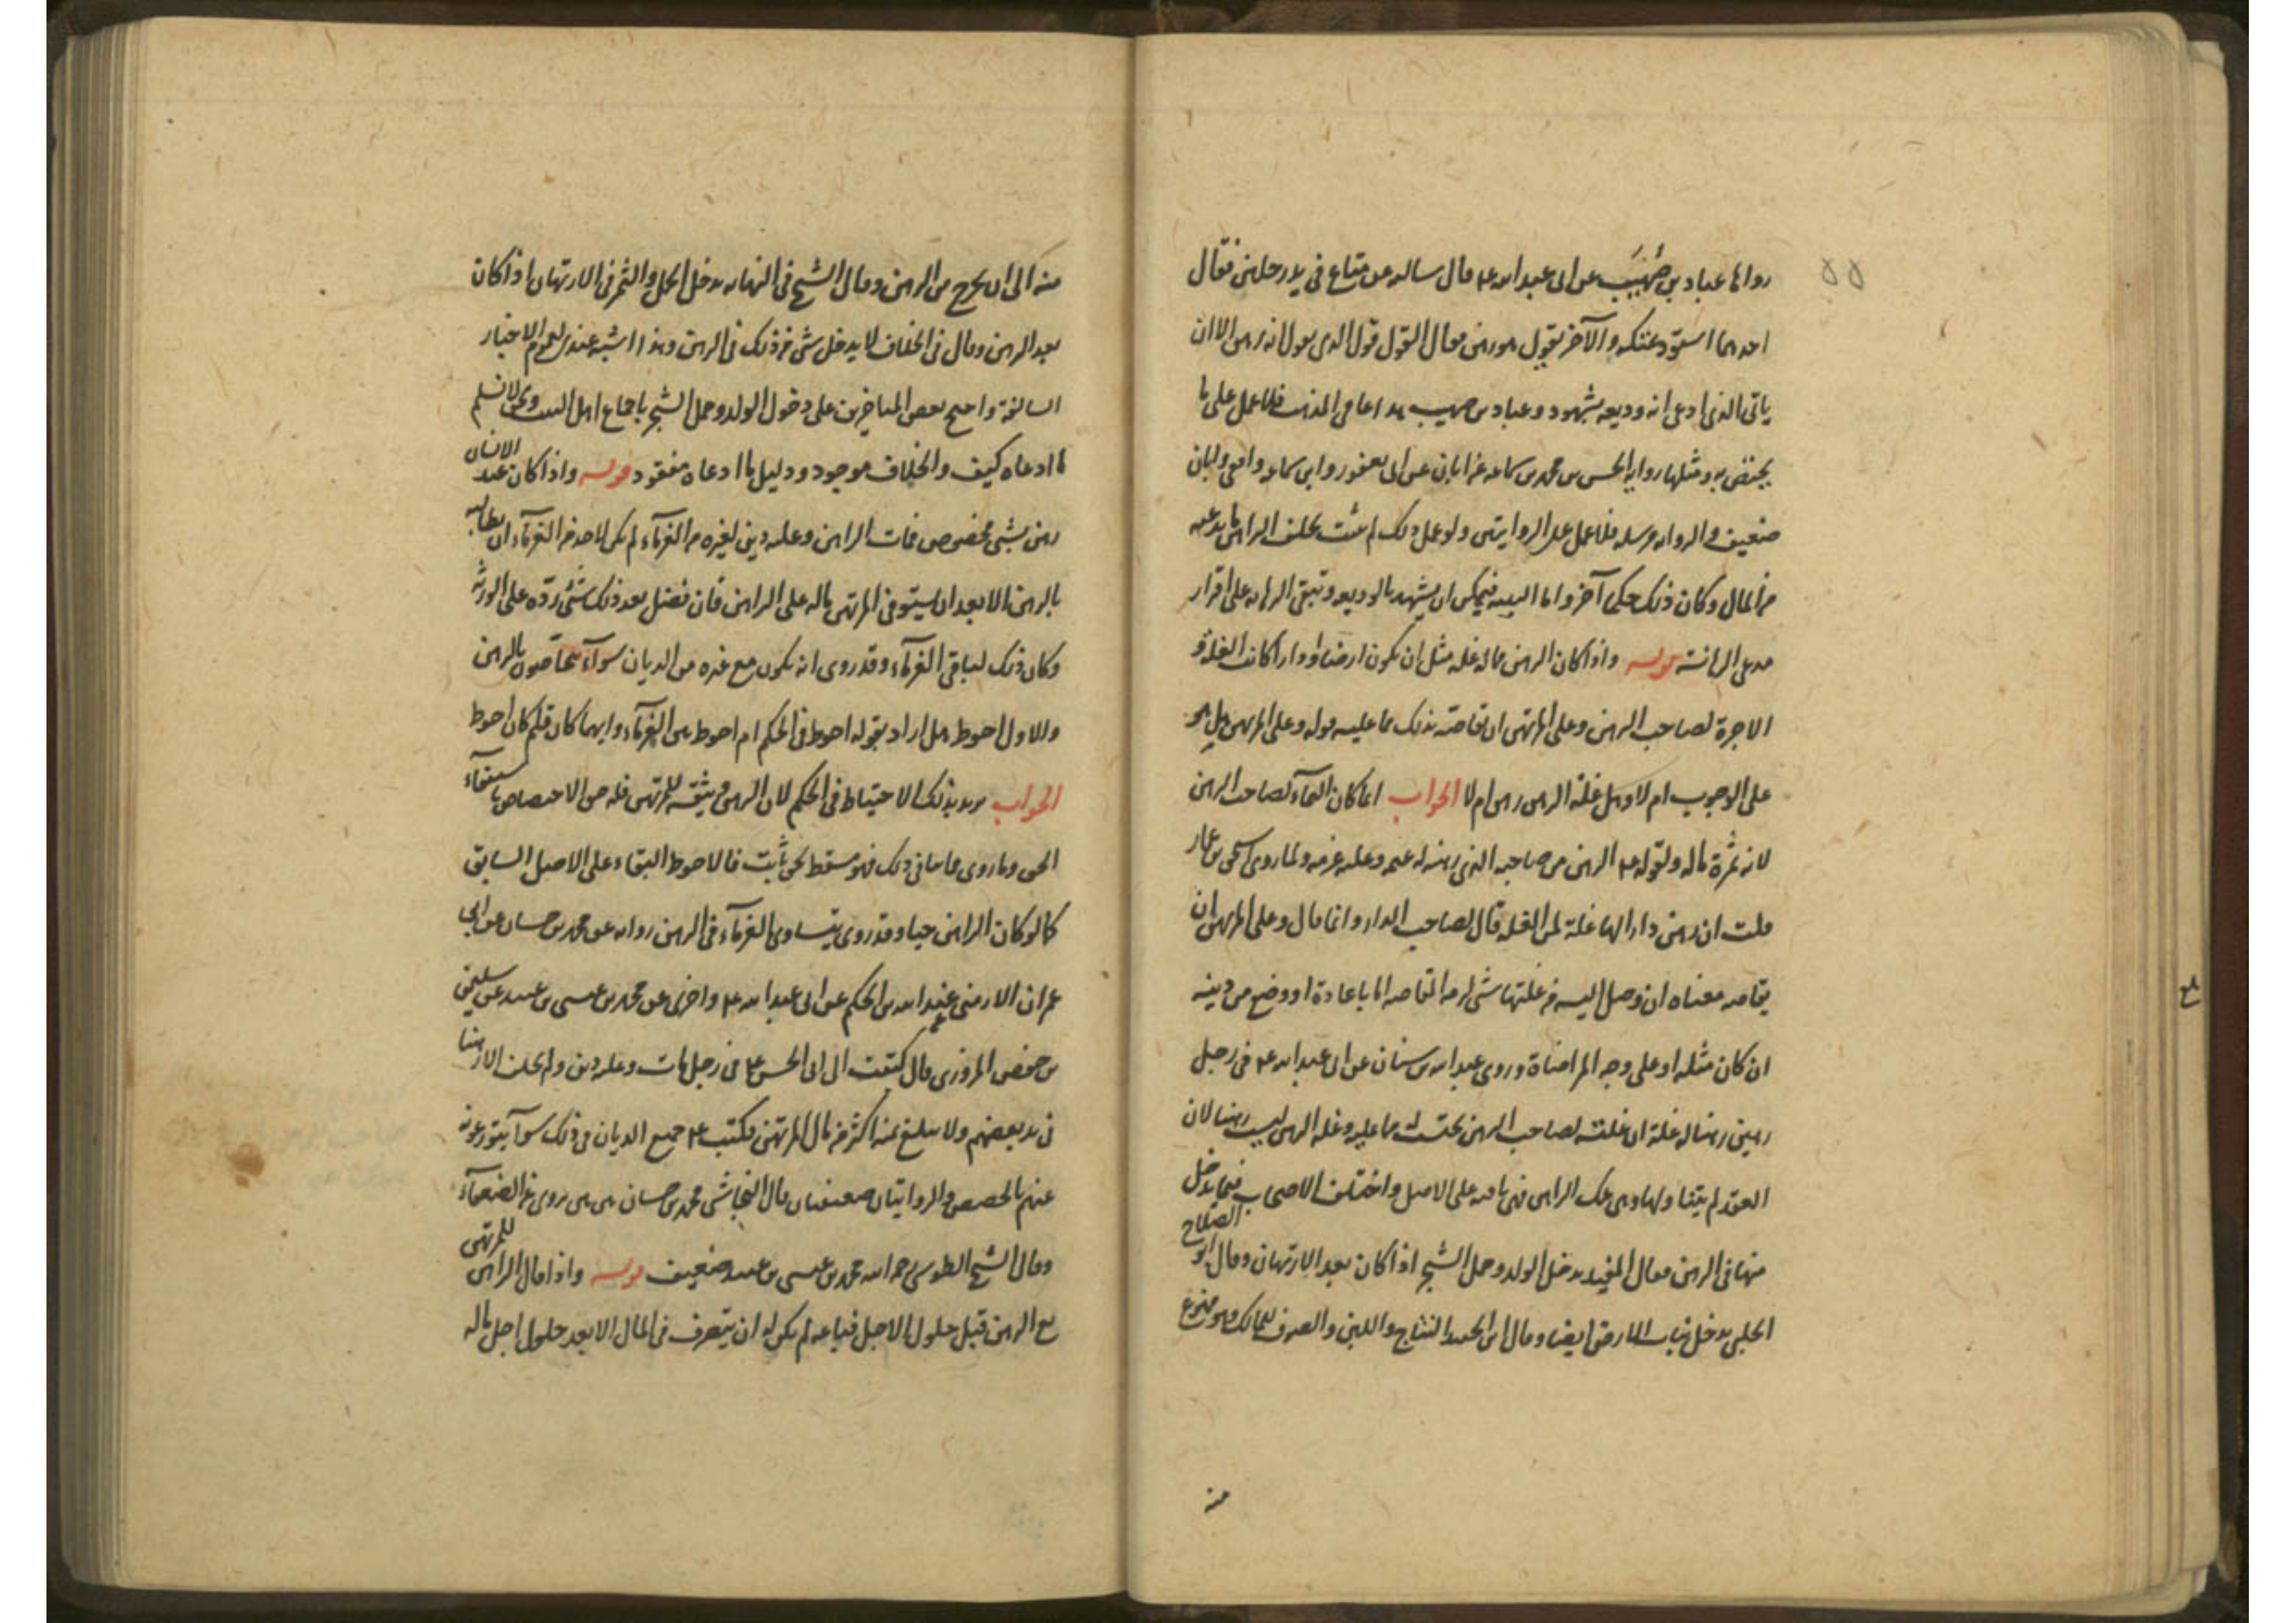 ٥٥
رواها عباد بن صُهَيب عن ابى عبد الله ع قال سالته عن متاع فى يد رجلين فقال
احدهما استودعتكه والآخر يقول هو رهن فقال القول قول الذى يقول انه رهن الا ان
ياتى الذى ادعى انه وديعه بشهود وعباد بن صهيب هذا عامى المذهب فلا عمل على ما
يختص به ومثلها رواية الحسن بن محمد بن سماعه عن ابان عن ابن ابى يعفور وابن سماعه واقفى وابان
ضعيف والرواية مرسله فلا عمل على الروايتين ولو عمل بذلك لم يثبت بحلف الراهن ما يدعيه
من المال وكان ذلك حكما آخر واما البينه فيمكن ان يشهد بالوديعه وتبقى الرهانه على اقرار
مدعى الرهانته قوله واذا كان الرهن مما له غله مثل ان يكون ارضا او دارا كانت الغلة و
الاجرة لصاحب الرهن وعلى المرتهن ان يقاصه بذلك مما عليه قوله وعلى المرتهن هل هو
على الوجوب ام لا وهل غلة الرهن رهن ام لا الجواب انما كان النمآء لصاحب الرهن
لانه ثمرة ماله ولقوله ع الرهن من صاحبه الذى رهنه له غنمه وعليه غرمه ولما روى اسحق بن عمار
قلت ان رهن دارا لها غلة لمن الغله قال لصاحب الدار وانما قال وعلى المرتهن ان
يقاصه معناه ان وصل اليه من غلتها شى لزمه المقاصه اما باعادة او وضع من دينه
ان كان مثله او على وجه المراضاة وروى عبد الله بن سنان عن ابى عبد الله ع فى رجل
رهن رهنا له غلة ان غلته لصاحب الرهن تحتسب مما عليه وغله الرهن ليست رهنا لان
العقد لم يتناولها وهى ملك الراهن فهى باقيه على الاصل واختلف الاصحاب فيما يدخل
منها فى الرهن فقال المفيد يدخل الولد وحمل الشجر اذا كان بعد الارتهان وقال ابو الصلاح
الحلبى يدخل نبات الارض ايضا وقال ابن الجنيد النتاج واللبن والصوف للمالك وهو ممنوع
منه
منه الى ان يخرج من الرهن وقال الشيخ فى النهايه يدخل الحمل والثمر فى الارتهان اذا كان
بعد الرهن وقال فى الخلاف لا يدخل شى من ذلك فى الرهن وهذا اشبه عندى لعموم الاخبار
السالفة واحتج بعض المتاخرين على دخول الولد وحمل الشجر باجماع اهل البيت ونحن لا نسلم
ما ادعاه كيف والخلاف موجود ودليل ما ادعاه مفقود قوله واذا كان عند الانسان
رهن بشئ مخصوص فمات الراهن وعليه دين لغيره من الغرمآء لم يكن لاحد من الغرمآء ان يطالبه
بالرهن الا بعد ان يستوفى المرتهن ماله على الراهن فان فضل بعد ذلك شئ ردّه على الورثه
وكان ذلك لباقى الغرمآء وقد روى انه يكون مع غيره من الديان سوآء يتحاصون بالرهن
والاول احوط هل اراد بقوله احوط فى الحكم ام احوط من الغرمآء وايهما كان فلم كان احوط
الجواب يريد بذلك الاحتياط فى الحكم لان الرهن وثيقه للمرتهن فله حق الاختصاص باستيفآء
الحق وما روى مما ينافى ذلك فهو مسقط لحق ثابت فالاحوط البقاء على الاصل السابق
كما لو كان الراهن حيا وقد روى يتساوى الغرمآء فى الرهن روايه عن محمد بن حسان عن ابى
عمران الارمنى عن عبد الله بن الحكم عن ابى عبد الله ع واخرى عن محمد بن عيسى بن عبيد عن سليمن
بن حفص المروزى قال كتبت الى ابى الحسن ع فى رجل مات وعليه دين ولم يخلف الا رهنا
فى يد بعضهم ولا يبلغ ثمنه اكثر من مال المرتهن فكتب ع جميع الديان فى ذلك سوآ يتوزعونه
عنهم بالحصص والروايتان ضعيفتان قال النجاشى محمد بن حسان بين بين يروى عن الضعفآء
وقال الشيخ الطوسى رحمه الله محمد بن عيسى بن عبيد ضعيف قوله واذا قال الراهن للمرتهن
بع الرهن قبل حلول الاجل فباعه لم يكن له ان يتصرف فى المال الا بعد حلول اجل ماله